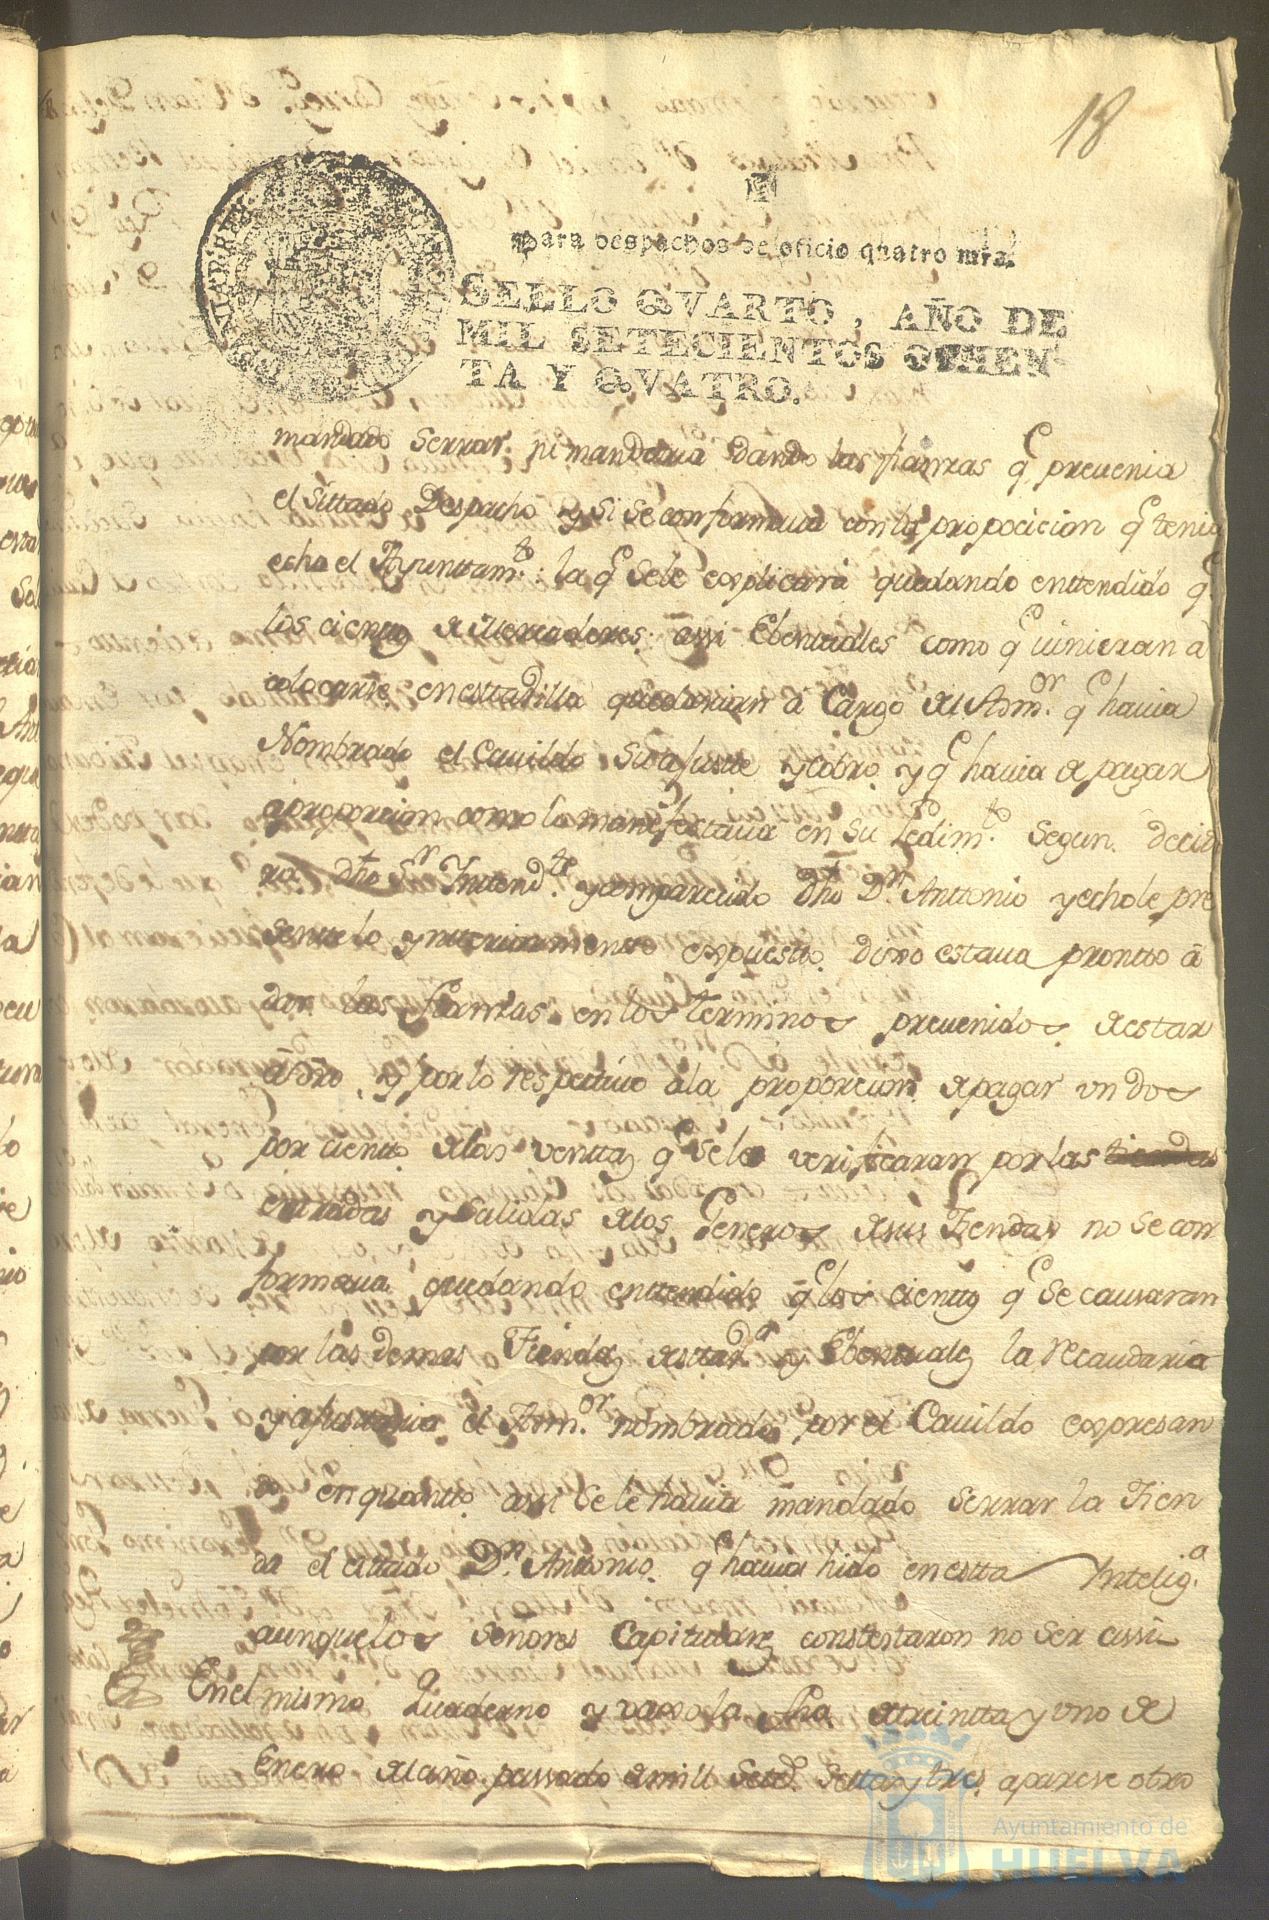 18
para despachos de oficio quatro mrs.
SELLO QVARTO, AÑO DE
MIL SETECIENTOS OCHEN
TA Y QVATRO.
mandado serrar, ni mandaria dando las fianzas q prevenia
el sittado Despacho y si se conformava con la propocicion q tenia
echo el Ayunttam.to; la q sele explicará quedando enttendido q
los cientos de Mercaderes, assi Ebentuales como q vinieran a
colocarse en estta villa quedarian á Cargo del Adm.or q havia
Nombrado el Cavildo su ajuste y cobro y q havia de pagar
a proporcion como lo manifestava en su Pedim.to segun decidi
ra dho S.r Inttend.te y comparecido dho D.n Anttonio y echole pre
sente lo antteriormente expuestto, dixo estava prontto á
dar las fianzas en los terminos prevenidos, a estar
a dro, y por lo respectivo ala proporcion de pagar un dos
por ciento de las ventas q sele verificaran por las tiendas
entradas y salidas de los Generos de sus Tiendas no se con
formava quedando enttendido q los cientos q se causaran
por las demas Tiendas y Ebentuales la recaudaria
y ajustaria el Adm.or nombrado por el Cavildo expresan
do en quantto assi se le havia mandado serrar la Tien
da el cittado D.n Antonio, q havia hido en estta Intelig.a
aunque los Señores Capitulares consttestaron no ser assi
En el mismo Quaderno y vaxo la fha de treintta y uno de
Enero del año passado de mill Setes. Settta y tres, aparese otro
Ayuntamiento de
HUELVA